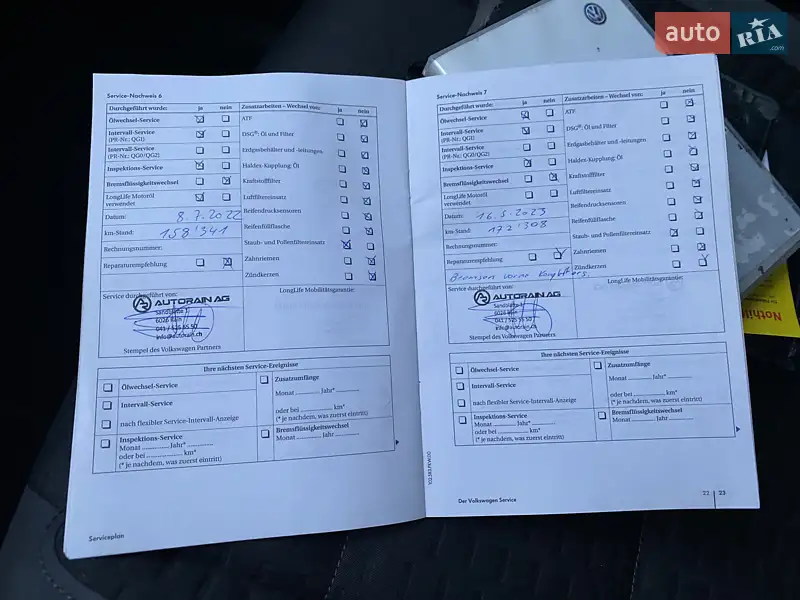 auto RIA .com
Service-Nachweis 6
Durchgeführt wurde: ja nein
Ölwechsel-Service
Intervall-Service
(PR-Nr.: QG1)
Intervall-Service
(PR-Nr.: QG0/QG2)
Inspektions-Service
Bremsflüssigkeitswechsel
LongLife Motoröl
verwendet
Datum: 8.7.2022
km-Stand: 158'341
Rechnungsnummer:
Reparaturempfehlung
Zusatzarbeiten – Wechsel von: ja nein
ATF
DSG®: Öl und Filter
Erdgasbehälter und -leitungen
Haldex-Kupplung: Öl
Kraftstofffilter
Luftfiltereinsatz
Reifendrucksensoren
Reifenfüllflasche
Staub- und Pollenfiltereinsatz
Zahnriemen
Zündkerzen
Service durchgeführt von:
AUTORAIN AG
6026 Rain
041 / 525 55 50
info@autorain.ch
Stempel des Volkswagen Partners
LongLife Mobilitätsgarantie:
Ihre nächsten Service-Ereignisse
Ölwechsel-Service
Intervall-Service
nach flexibler Service-Intervall-Anzeige
Inspektions-Service
Monat Jahr*
oder bei km*
(* je nachdem, was zuerst eintritt)
Zusatzumfänge
Monat Jahr*
oder bei km*
(* je nachdem, was zuerst eintritt)
Bremsflüssigkeitswechsel
Monat Jahr
Serviceplan
Service-Nachweis 7
Durchgeführt wurde: ja nein
Ölwechsel-Service
Intervall-Service
(PR-Nr.: QG1)
Intervall-Service
(PR-Nr.: QG0/QG2)
Inspektions-Service
Bremsflüssigkeitswechsel
LongLife Motoröl
verwendet
Datum: 16.5.2023
km-Stand: 172'308
Rechnungsnummer:
Reparaturempfehlung
Bremsen vorne
Zusatzarbeiten – Wechsel von: ja nein
ATF
DSG®: Öl und Filter
Erdgasbehälter und -leitungen
Haldex-Kupplung: Öl
Kraftstofffilter
Luftfiltereinsatz
Reifendrucksensoren
Reifenfüllflasche
Staub- und Pollenfiltereinsatz
Zahnriemen
Zündkerzen
Service durchgeführt von:
AUTORAIN AG
6026 Rain
041 / 525 55 50
info@autorain.ch
Stempel des Volkswagen Partners
LongLife Mobilitätsgarantie:
Ihre nächsten Service-Ereignisse
Ölwechsel-Service
Intervall-Service
nach flexibler Service-Intervall-Anzeige
Inspektions-Service
Monat Jahr*
oder bei km*
(* je nachdem, was zuerst eintritt)
Zusatzumfänge
Monat Jahr*
oder bei km*
(* je nachdem, was zuerst eintritt)
Bremsflüssigkeitswechsel
Monat Jahr
Der Volkswagen Service
22 23